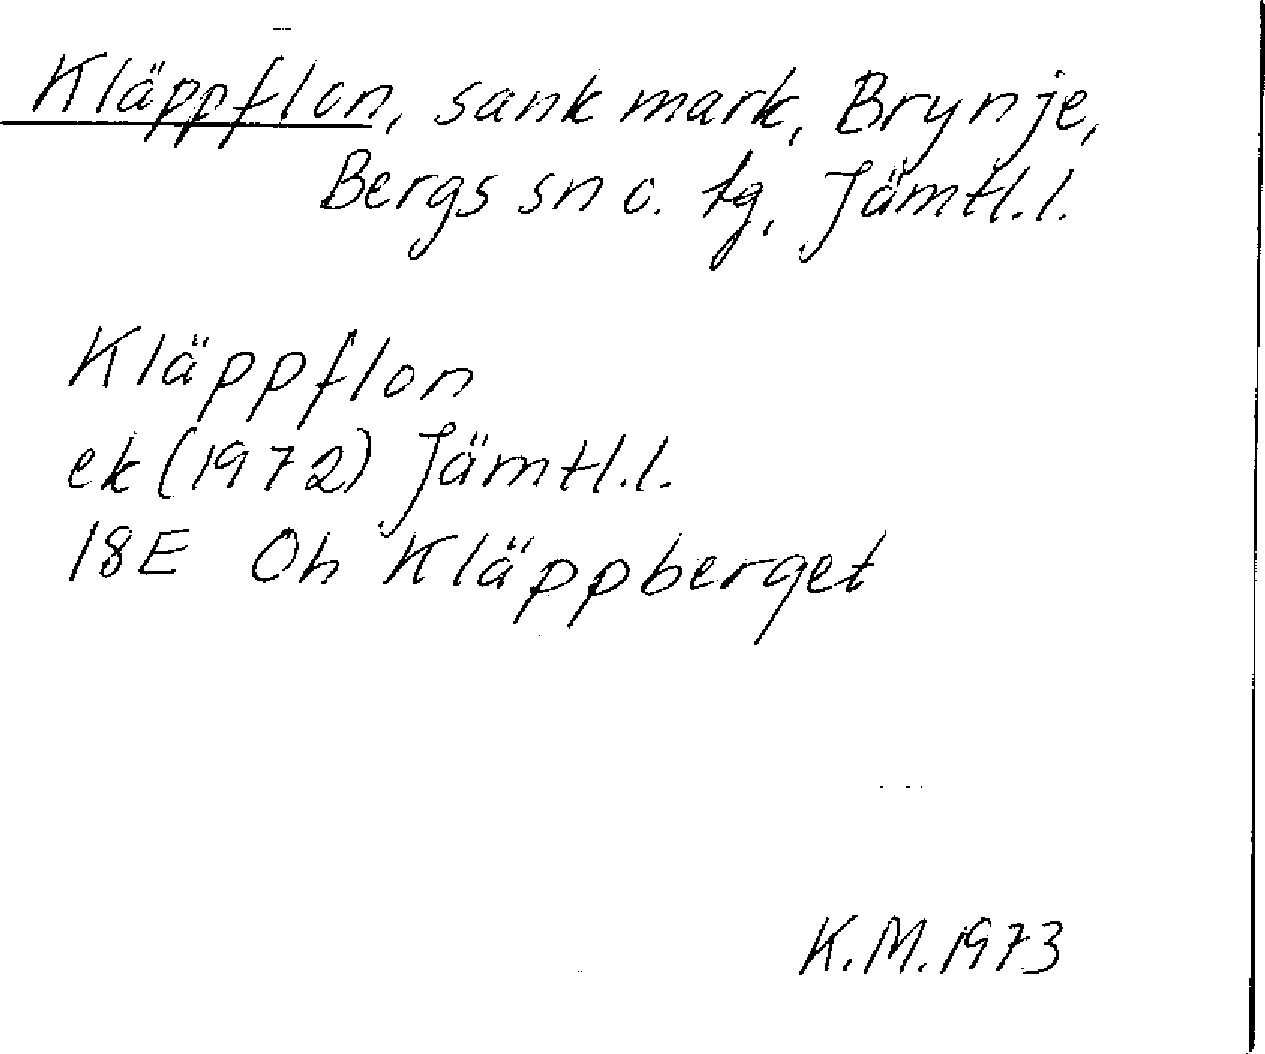 Kläppflon, sank mark, Brynje,
Bergs sn o. tg, Jämtl.l.
Kläppflon
ek (1972) Jämtl.l.
18E Oh Kläppberget
K.M. 1973